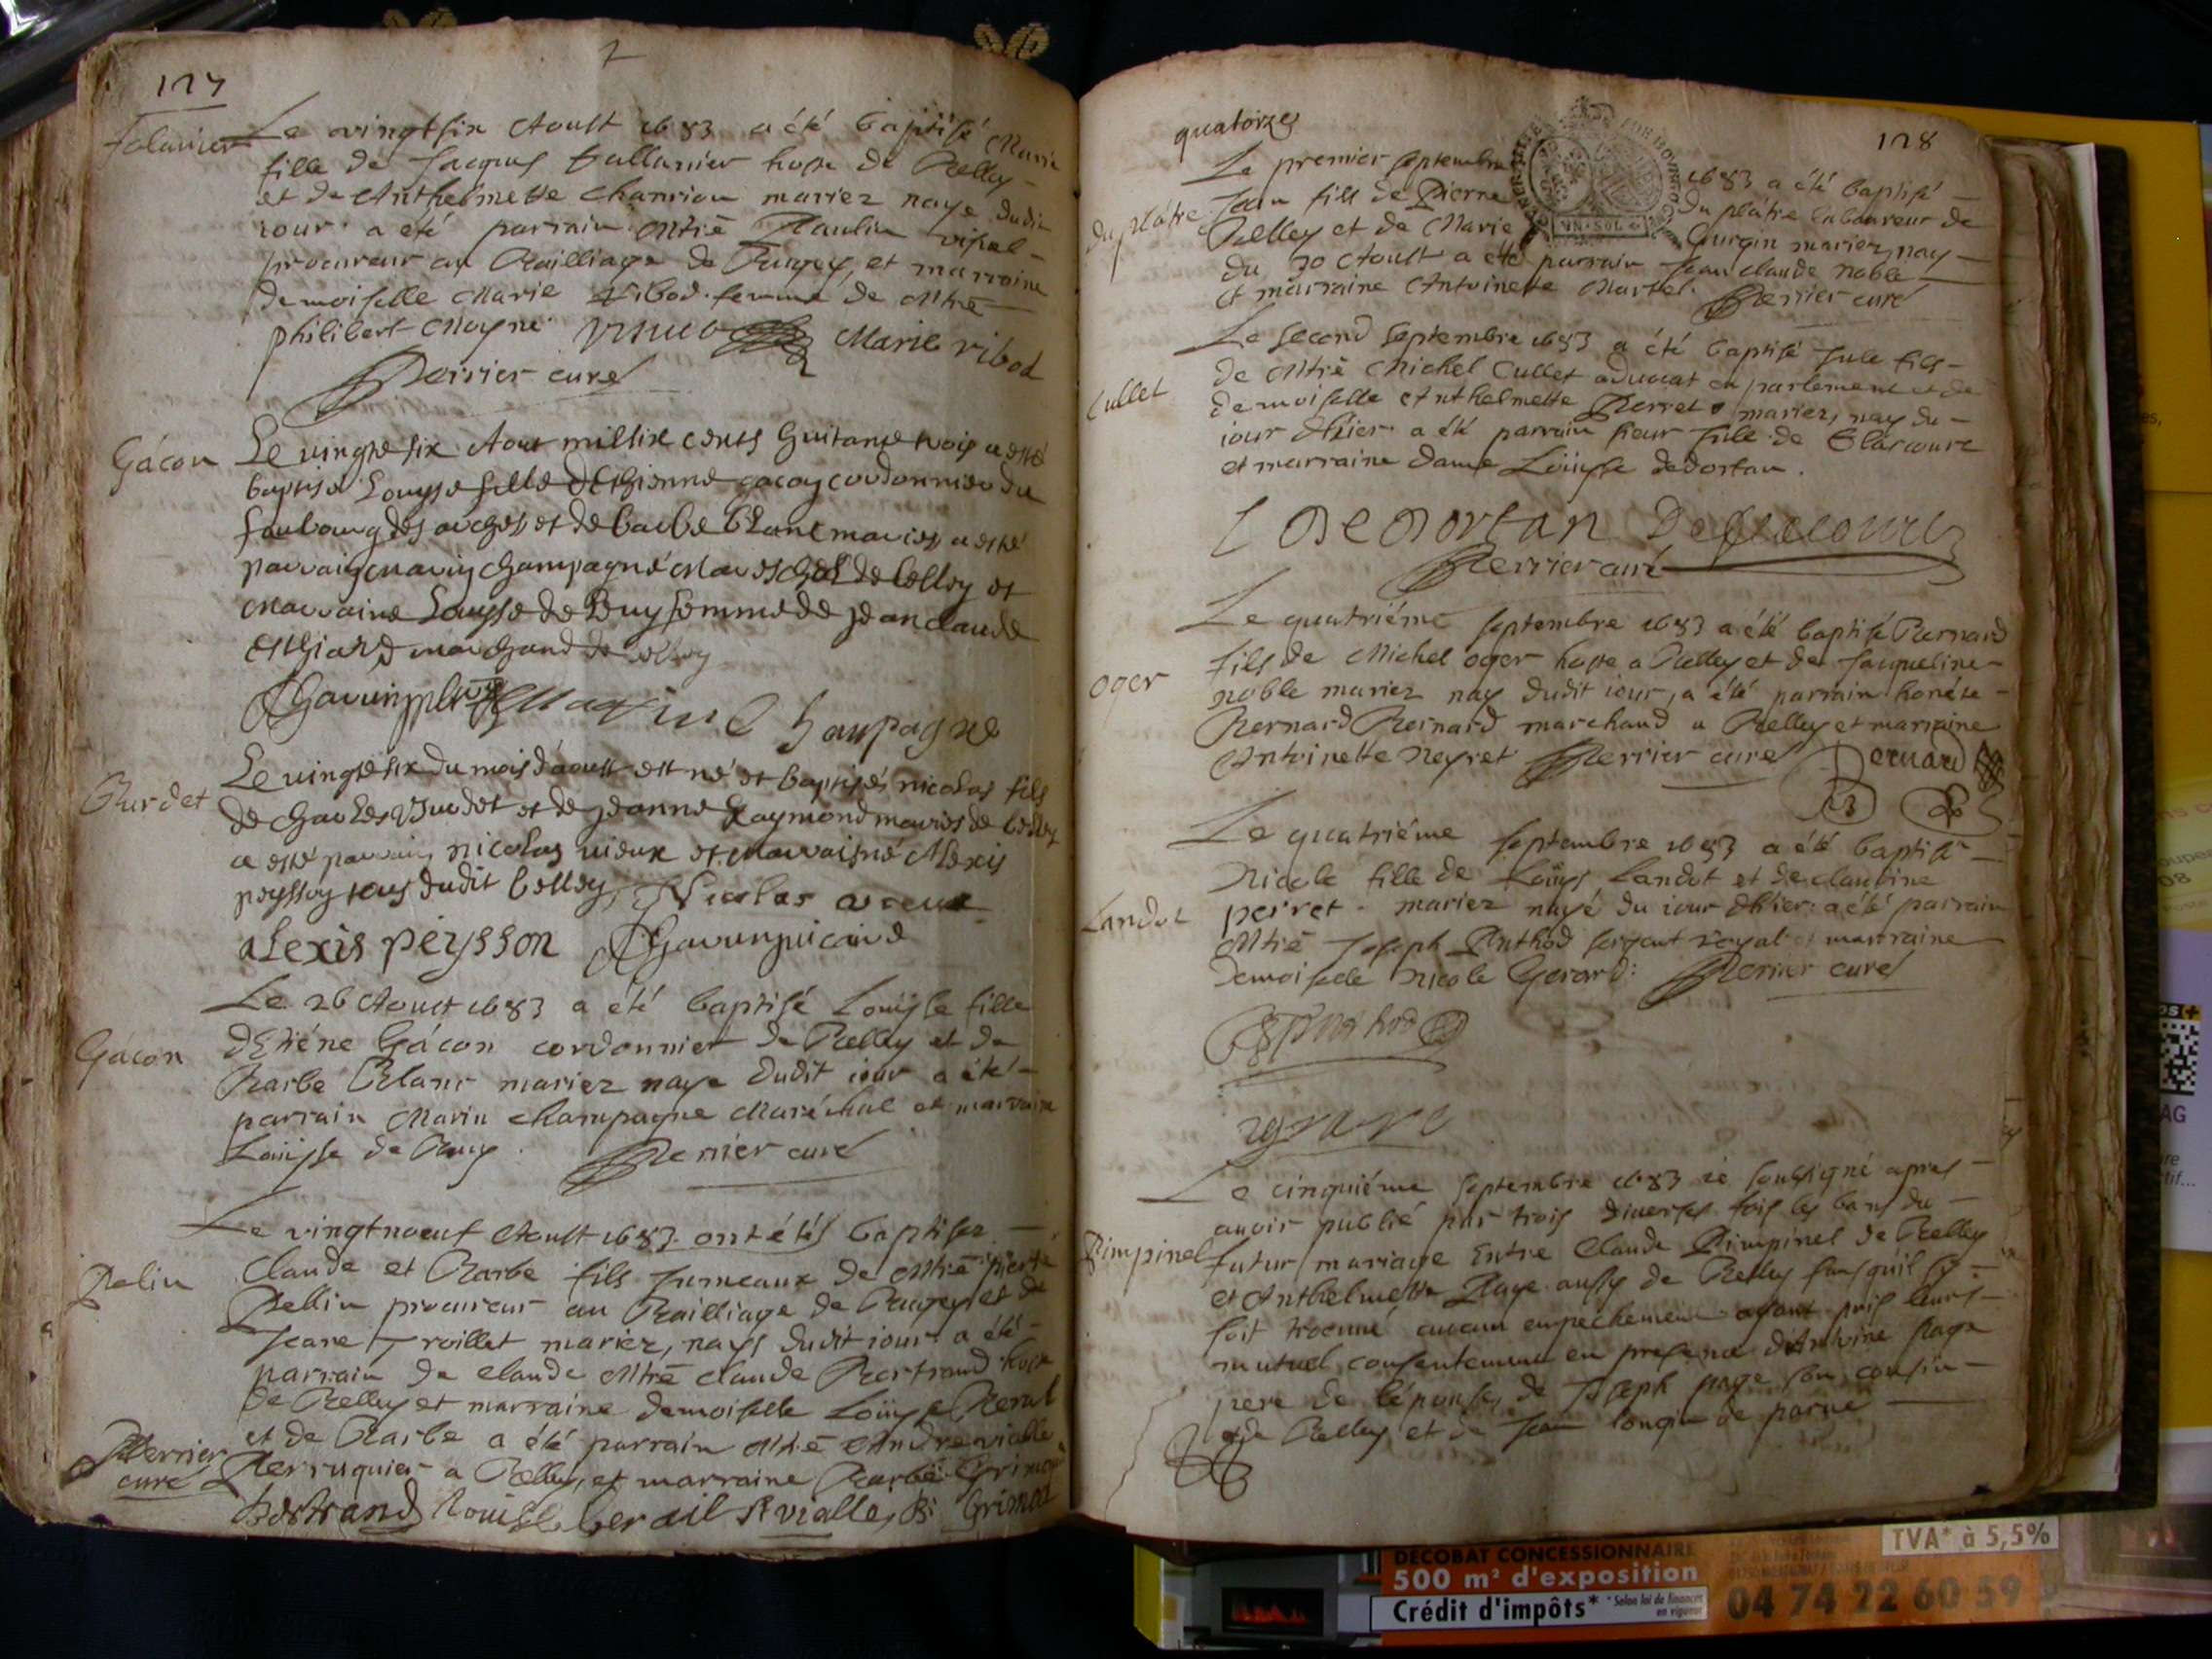 127
Le vingtsix Aoust 1683 a été baptisé Marie
fille de Jacques hoste de Belley
et de Anthelmette mariez naye dudit
iour a été parrain Mtre
procureur au Bailliage de Bugey, et marraine
demoiselle Marie Ribod femme de Mtre
philibert Moyne Marie ribod
Perrier curé
Gácon
Le vingte six Aout mil six cents huitante trois a esté
baptisé Louyse fille d'Esthienne gacon cordonnier du
faubourg des arches et de barbe blanc maries a esté
parrain marin champagne Mareschal de belley et
Marraine Louyse de Bruy femme de jeanclaude
marchand de belley
Marin Champagne
Burdet
Le vingte six du mois d'aoust est né et baptisé nicolas fils
de Charles Burdet et de jeanne Raymond maries de belley
a esté parrain nicolas vieux et marraine Alexis
peysson tous dudit belley, Nicolas vieux
alexis peysson
Le 26 Aoust 1683 a été baptisé Loüyse fille
Gácon
d'Etiéne Gácon cordonnier de Belley et de
Barbe Blanc mariez naye dudit iour a été
parrain Marin champagne Maréchal et marraine
Loüyse de Bruy. Perrier curé
Le vingtnoeuf Aoust 1683 ont étés baptisez
Pelin
Claude et Barbe fils jumeaux de Mtre pierre
Pellin procureur au Bailliage de Bugey et de
Jeane Troillet mariez, nays dudit iour a été
parrain de Claude Mtre claude Bertrand hoste
de Belley et marraine demoiselle Loüyse
et de Barbe a été parrain Mtre Andre vialle
Perruquier a Belley, et marraine Barbe Grimod
Perrier
curé
bertrand Louise vialle, B: Grimod
quatorze
128
Le premier septembre 1683 a été baptisé
du plâtre
Jean fils de Pierre du plâtre laboureur de
Belley et de Marie Gurgin mariez, nay
du 30 Aoust a été parrain Jean claude noble
et marraine Antoinette Martel. Perrier curé
UN·SOL
Le second septembre 1683 a été baptisé Jule fils
Cullet
de Mtre Michel Cullet advocat en parlement et de
demoiselle Anthelmette Perret mariez, nay du
iour d'hier a été parrain sieur Jule de
et marraine dame Loüyse dedortan.
L De Dortan
Perrier curé
Le quatriéme septembre 1683 a été baptisé Bernard
Oger
fils de Michel oger hoste a Belley et de Jaqueline
noble mariez nay dudit iour, a été parrain honéste
Bernard Bernard marchand a Belley et marraine
Antoinette Neyret Perrier curé Bernard
Le quatriéme septembre 1683 a été baptisé
Nicole fille de Loüys Landot et de claudine
Landot
peiret mariez nayé du iour d'hier: a été parrain
Mtre Joseph Anthod sergent royal et marraine
demoiselle Nicole Gerard: Perrier curé
Le cinquiéme septembre 1683 ie soubsigné apres
auoir publié par trois diuerses fois les bans du
Pimpinel
futur mariage entre Claude Pimpinel de Belley
et Anthelmette Page aussy de Belley sans qu'il sy
soit treuuué aucun empechement ayant pris leurs
mutuel consentement en presence d'Antoine page
pere de l'épouse, de Joseph page son cousin
de Belley et de Jean longin de parue
DECOBAT CONCESSIONNAIRE
500 m² d'exposition
Crédit d'impôts* *Selon loi de finances
en vigueur
TVA* à 5,5%
04 74 22 60 59